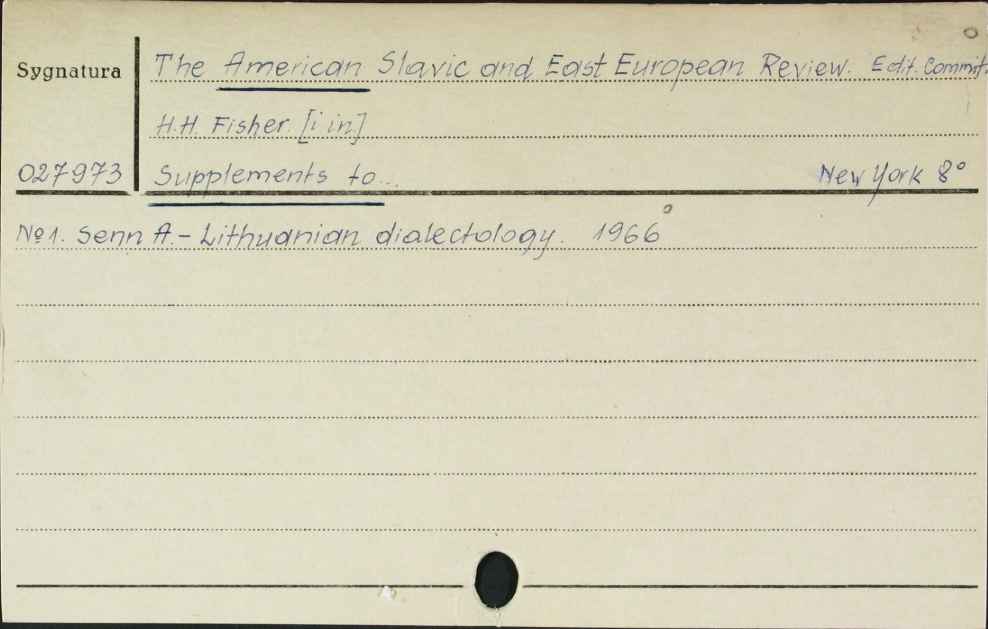 Sygnatura The American Slavic and East European Review. Edit. Commit.
H.H. Fisher [i in]
027973 Supplements to... New York 8°
№1. Senn A. – Lithuanian dialectology. 1966